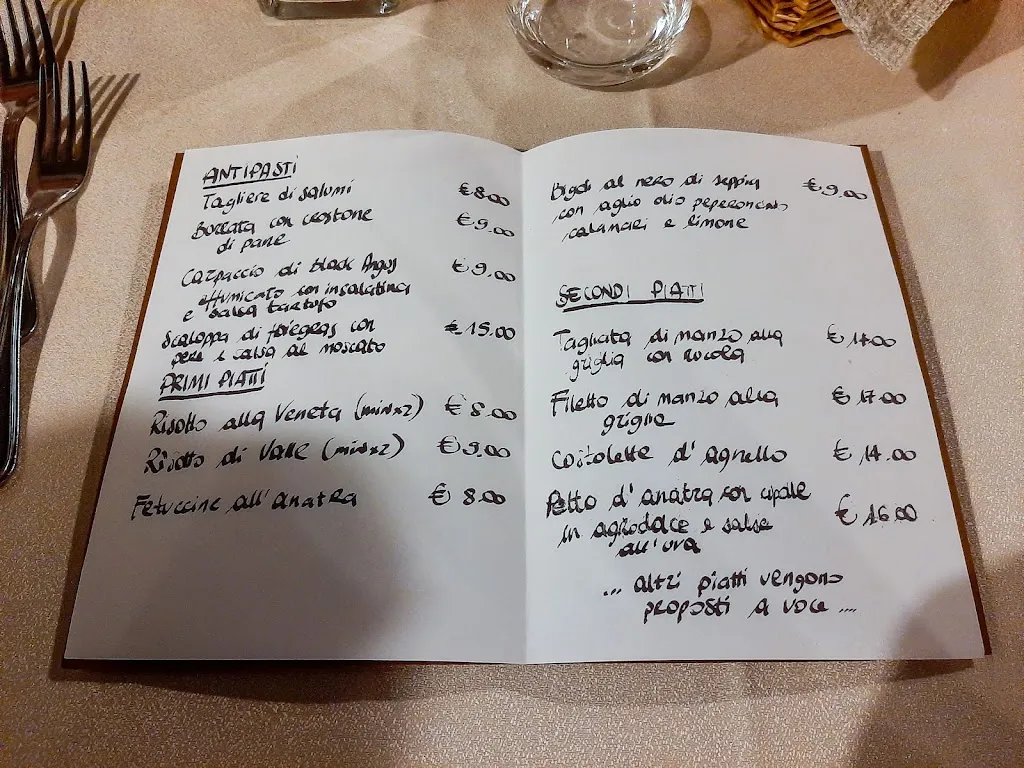 ANTIPASTI
Tagliere di salumi €8.00
Burrata con crostone €9.00
di pane
Carpaccio di black Angus €9.00
affumicato con insalatina
e salsa tartufo
Scaloppa di foiegras con €15.00
pere e salsa al moscato
PRIMI PIATTI
Risotto alla Veneta (minx2) €8.00
Risotto di Valle (minx2) €9.00
Fetuccine all'anatra €8.00
Bigoli al nero di seppia €9.00
con aglio olio peperoncino
calamari e limone
SECONDI PIATTI
Tagliata di manzo alla €14.00
griglia con rucola
Filetto di manzo alla €17.00
griglia
Costolette d'agnello €14.00
Petto d'anatra con cipolle €16.00
in agrodolce e salsa
all'uva
... altri piatti vengono
proposti a voce ....